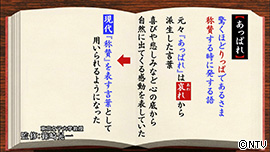 【あっぱれ】
驚くほどりっぱであるさま
称賛する時に発する語
元々「あっぱれ」は哀れから
あわ
派生した言葉
喜びや悲しみなど心の底から
自然に出てくる感動を表していた
現代「称賛」を表す言葉として
用いられるようになった
©NTV